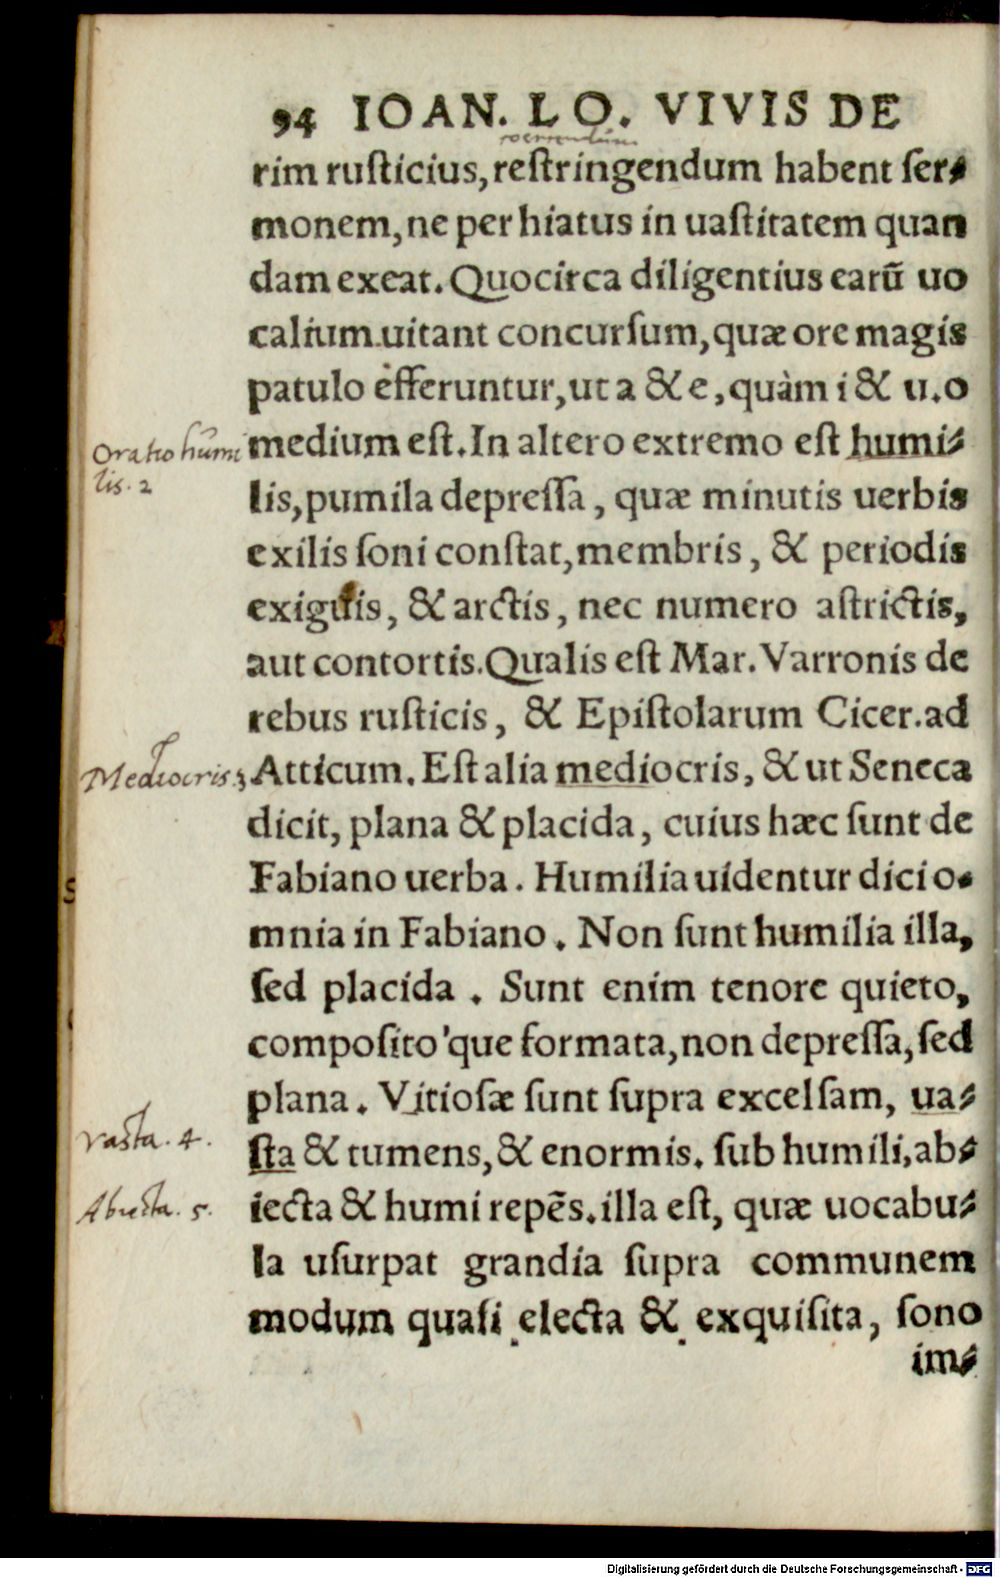 94 IOAN. LO. VIVIS DE
rim ruſticius, reſtringendum habent ſer⸗
monem, ne per hiatus in uaſtitatem quan
dam exeat. Quocirca diligentius earũ uo
calium uitant concurſum, quæ ore magis
patulo efferuntur, ut a & e, quàm i & u. o
Oratio humi
medium eſt. In altero extremo eſt humi⸗
lis. 2
lis, pumila depreſſa, quæ minutis uerbis
exilis ſoni conſtat, membris, & periodis
exiguis, & arctis, nec numero aſtrictis,
aut contortis. Qualis eſt Mar. Varronis de
rebus ruſticis, & Epiſtolarum Cicer. ad
Mediocris. 3
Atticum. Eſt alia mediocris, & ut Seneca
dicit, plana & placida, cuius hæc ſunt de
Fabiano uerba. Humilia uidentur dici o⸗
mnia in Fabiano. Non ſunt humilia illa,
ſed placida. Sunt enim tenore quieto,
compoſito'que formata, non depreſſa, ſed
plana. Vitioſæ ſunt ſupra excelſam, ua⸗
vasta. 4.
ſta & tumens, & enormis. ſub humili, ab⸗
Abiecta. 5.
iecta & humi repẽs. illa eſt, quæ uocabu⸗
la uſurpat grandia ſupra communem
modum quaſi electa & exquiſita, ſono
im⸗
Digitalisierung gefördert durch die Deutsche Forschungsgemeinschaft - DFG